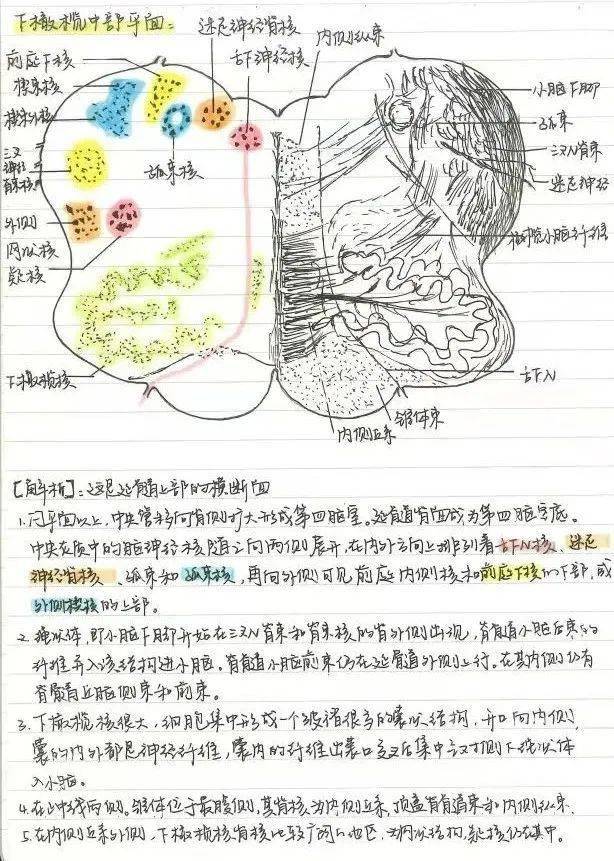 下橄榄中部平面:
迷走神经背核
舌下神经核
内侧纵束
前庭下核
楔束核
楔束外核
三叉神经脊束核
外侧网状核
疑核
下橄榄核
孤束核
小脑下脚
孤束
三叉N脊束
迷走神经
橄榄小脑纤维
舌下N
锥体束
内侧丘系
[解析]:这是延髓上部的横断面
1.闩平面以上,中央管移向背侧扩大形成第四脑室。延髓背面成为第四脑室底。
中央灰质中的脑神经核随之向两侧展开,在内外方向上排列着舌下N核、迷走
神经背核、孤束和孤束核,再向外侧可见前庭内侧核和前庭下核的下部,或
外侧楔核的上部。
2.绳状体,即小脑下脚开始在三叉N脊束和脊束核的背外侧出现,脊髓小脑后束的
纤维并入该结构进小脑。脊髓小脑前束仍在延髓外侧上行。在其内侧仍有
脊髓丘脑侧束和前束。
3.下橄榄核很大,细胞集中形成一个皱褶很多的囊状结构,开口向内侧,
囊的内外都是神经纤维,囊内的纤维出囊口交叉后集中于对侧下绳状体
入小脑。
4.在中线两侧。锥体位于最腹侧,其背核为内侧丘系,顶盖脊髓束和内侧纵束.
5.在内侧丘系外侧,下橄榄核背核比较广阔的地区,为网状结构,疑核仍在其中。